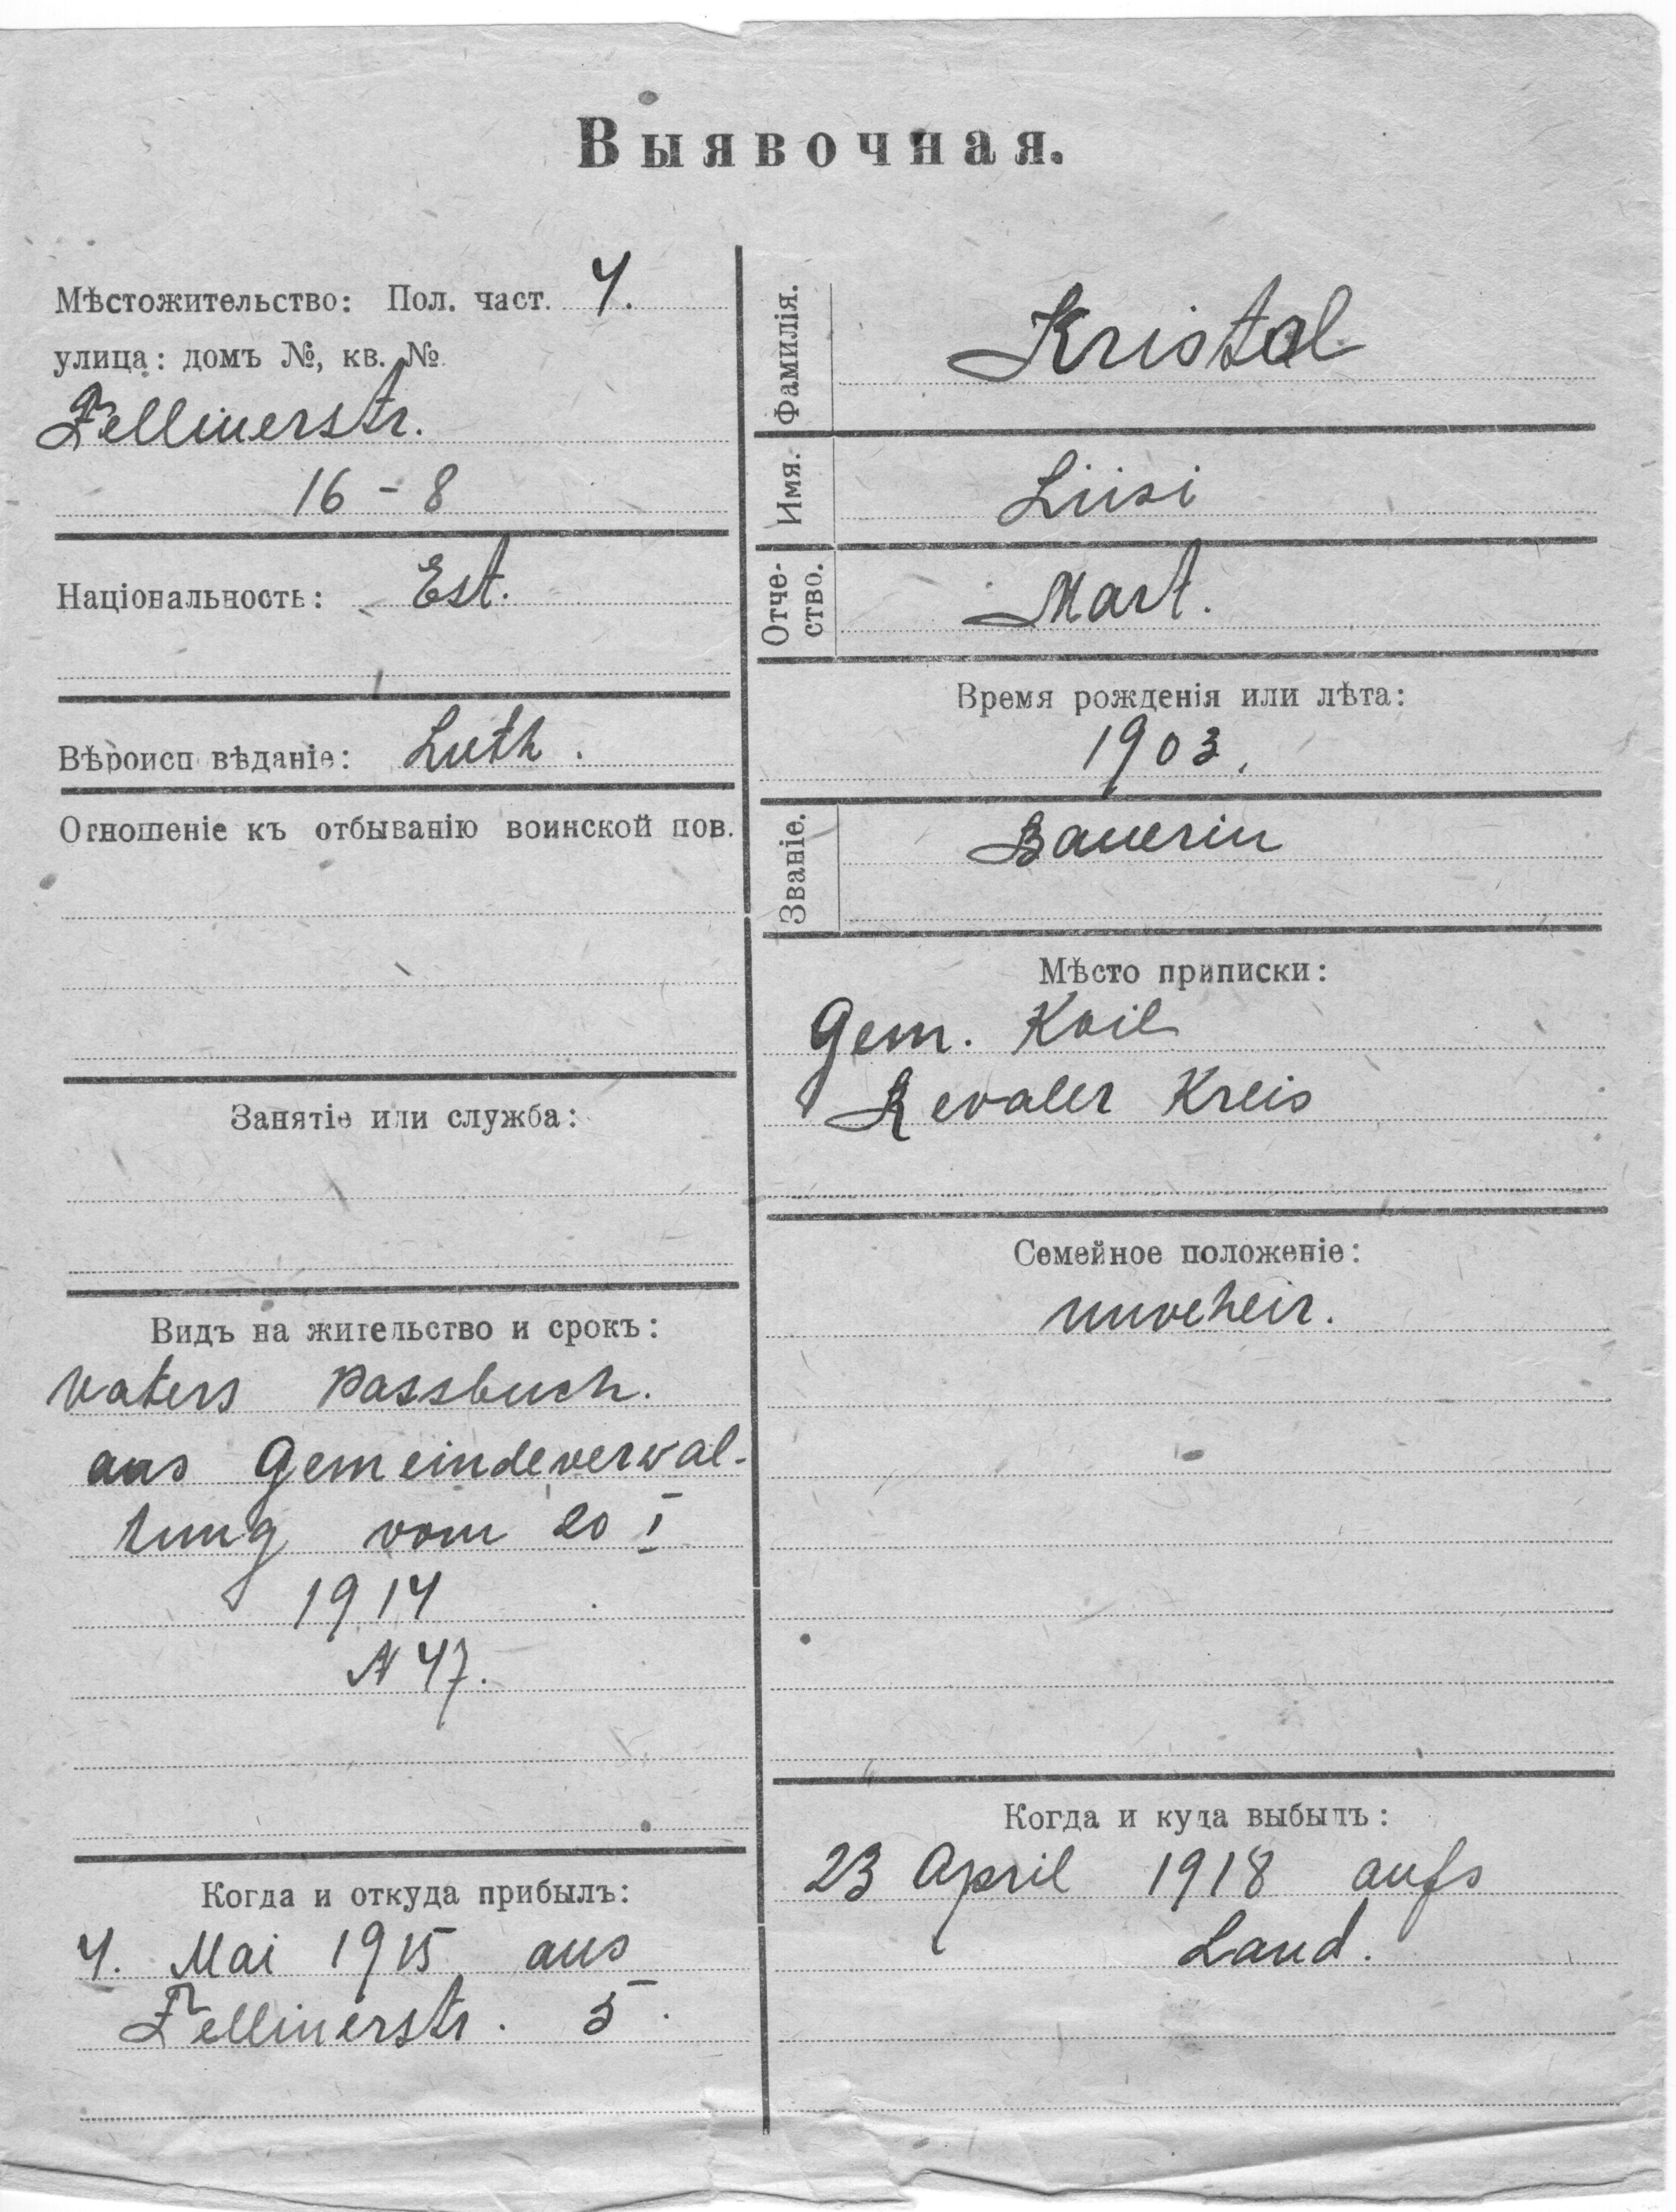 Выявочная.
Мѣстожительство: Пол. част. 4.
улица: домъ №, кв. №
Fellinerstr.
16 - 8
Національность: Est.
Вѣроисп вѣданіе: Luth.
Отношеніе къ отбыванію воинской пов.
Занятіе или служба:
Видъ на жительство и срокъ:
Vaters Passbuch.
aus Gemeindeverwal-
tung vom 20 I
1914
N 47.
Когда и откуда прибылъ:
4. Mai 1915 aus
Fellinerstr. 5.
Фамилія. Kristal
Имя. Liisi
Отче-
ство. Mart.
Время рожденія или лѣта:
1903.
Званіе. Bauerin
Мѣсто приписки:
Gem. Koil
Revaler Kreis
Семейное положеніе:
unveheir.
Когда и куда выбылъ:
23 April 1918 aufs
Land.